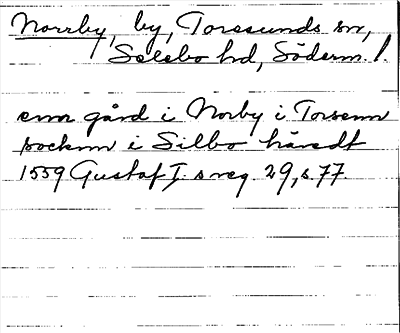 Norrby, by, Toresunds sn,
Selebo hd, Söderm. l.
enn gård i Norby i Torsenn
socknn i Silbo häredt
1559 Gustaf I. s reg. 29, s. 77